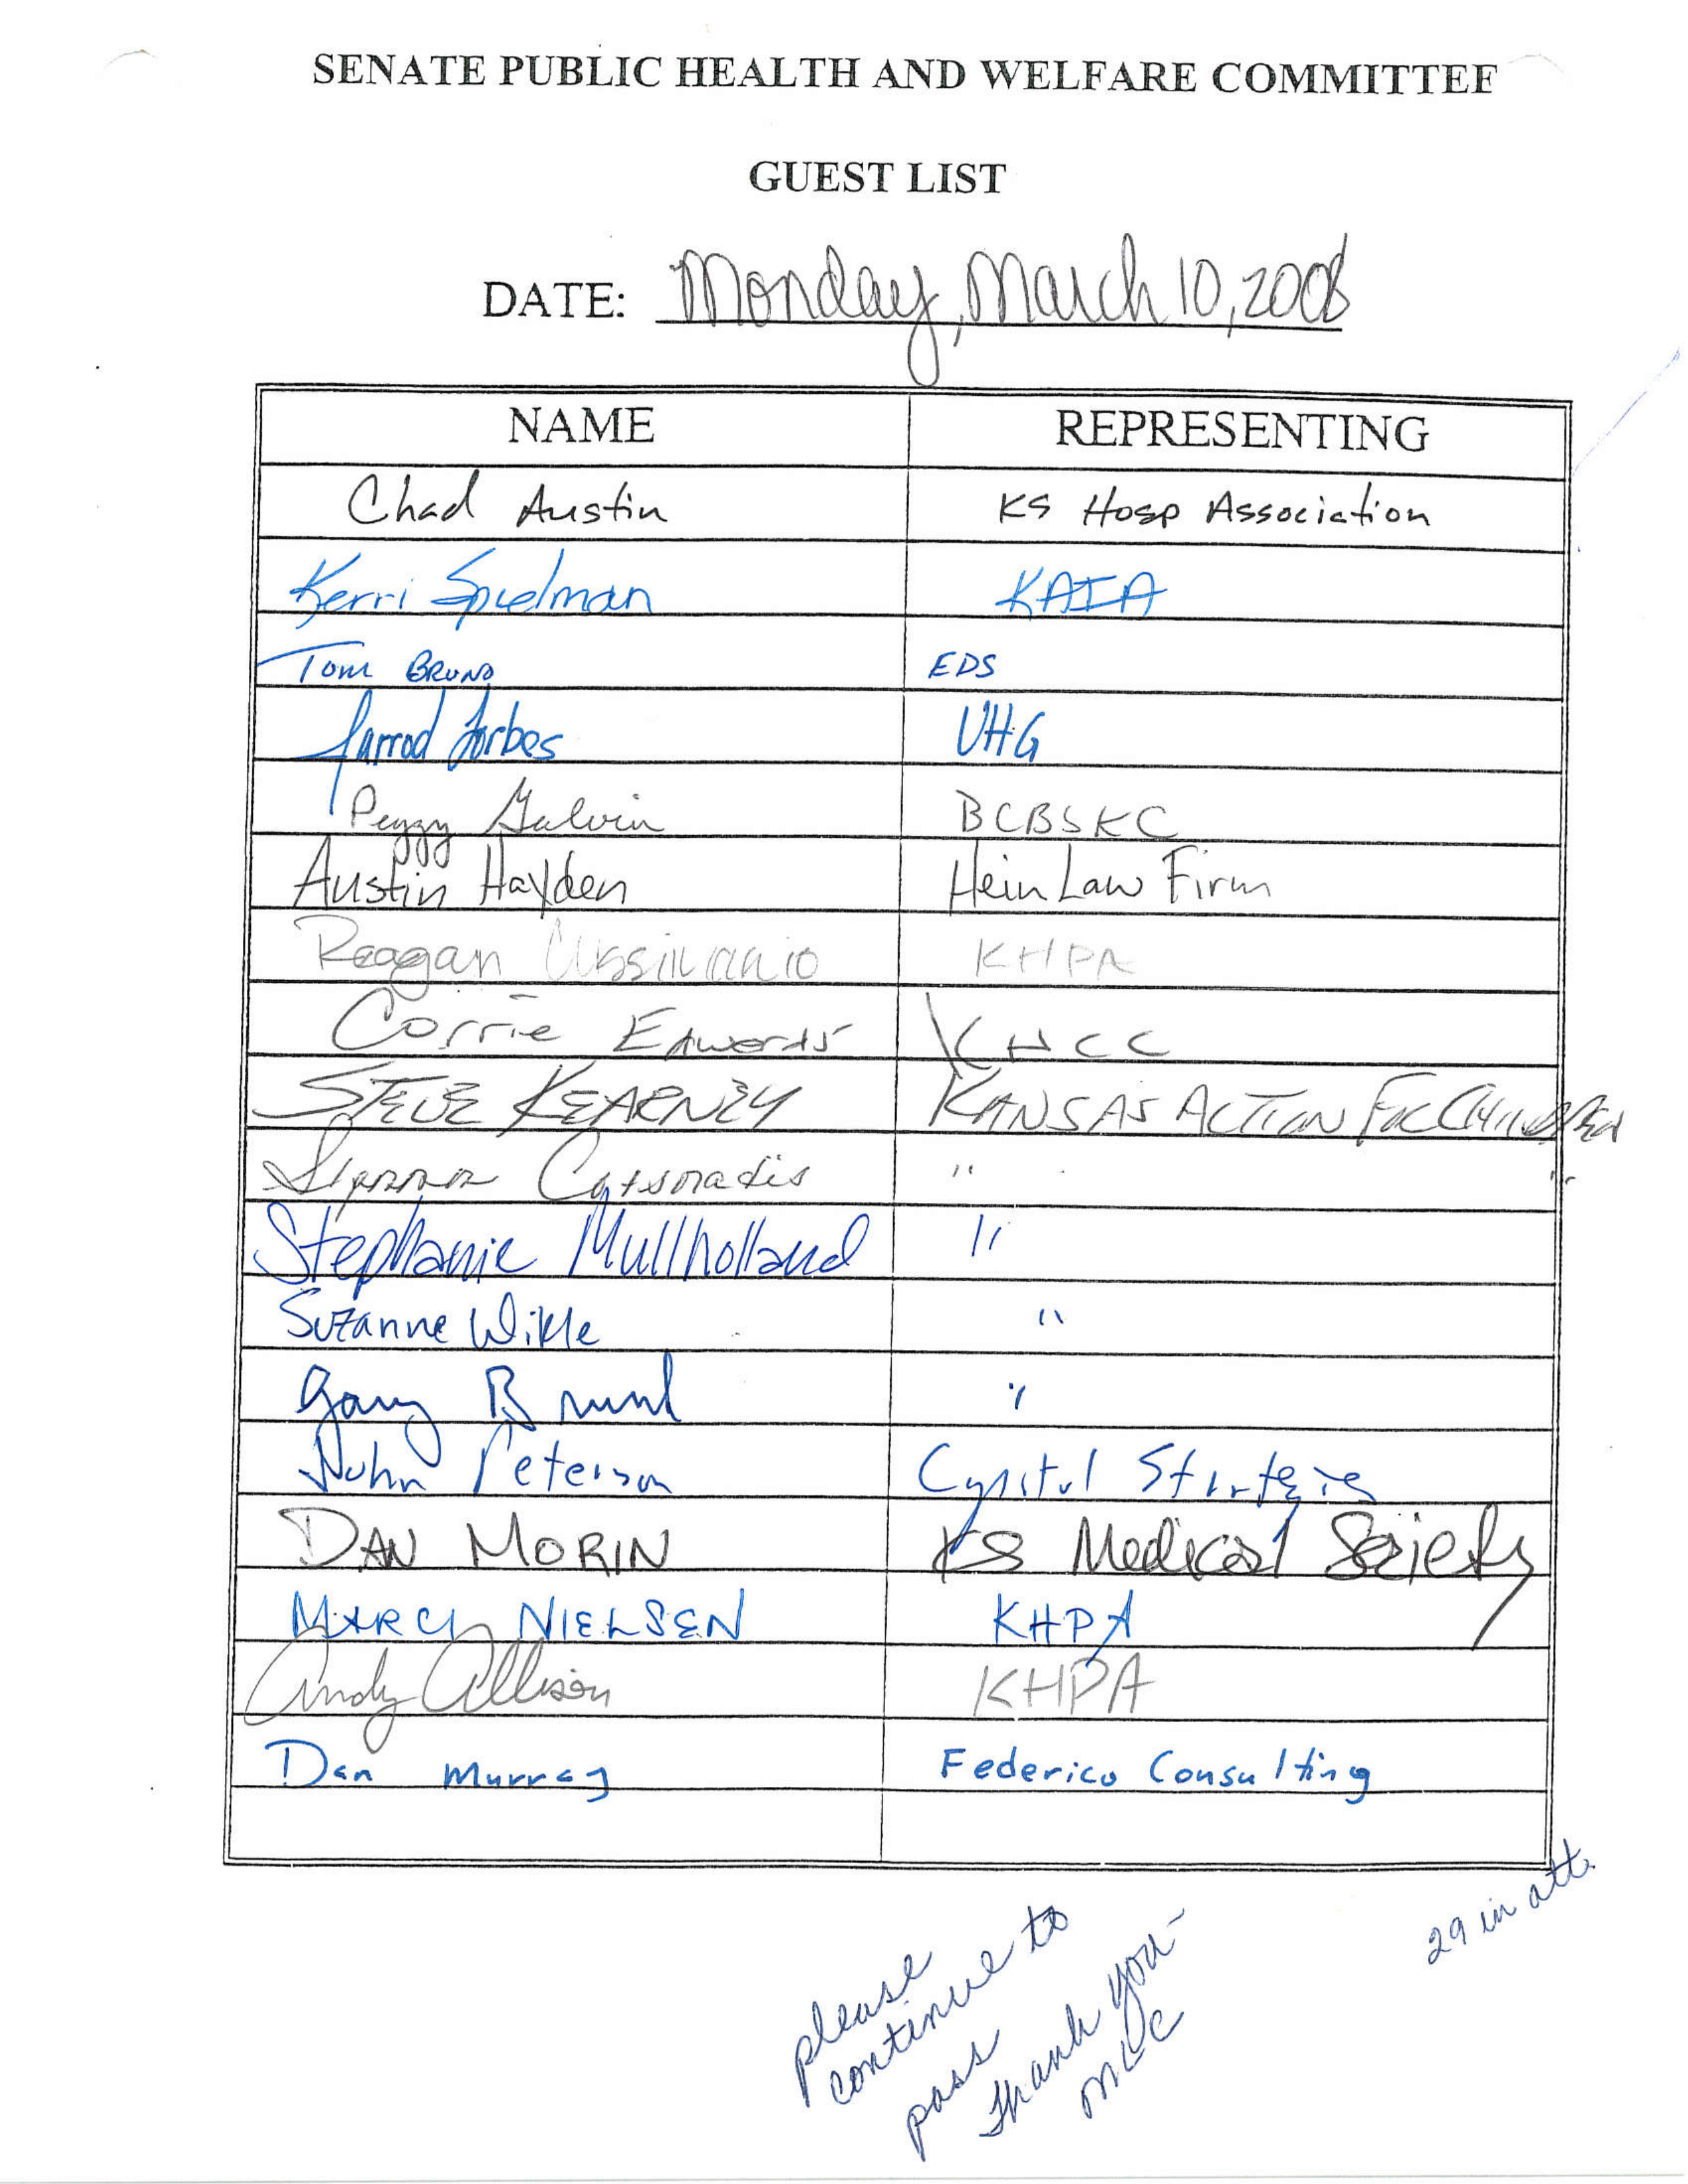 SENATE PUBLIC HEALTH AND WELFARE COMMITTEE
GUEST LIST
DATE: Monday, March 10, 2008
NAME REPRESENTING
Chad Austin KS Hosp Association
Kerri Spielman KAIA
Tom BRUNO EDS
Jarrod Forbes UHG
Peggy Galvin BCBSKC
Austin Hayden Hein Law Firm
Reagan KHPA
Corrie Edwards KHCC
STEVE KEARNEY KANSAS ACTION FOR CHILDREN
" "
Stephanie Mullholland "
Suzanne Wikle "
Gary "
John Peterson Capitol Strategies
DAN MORIN KS Medical Society
MARCI NIELSEN KHPA
Andy Allison KHPA
Dan Murray Federico Consulting
29 in att.
please
continue to
pass
Thank you-
MLC